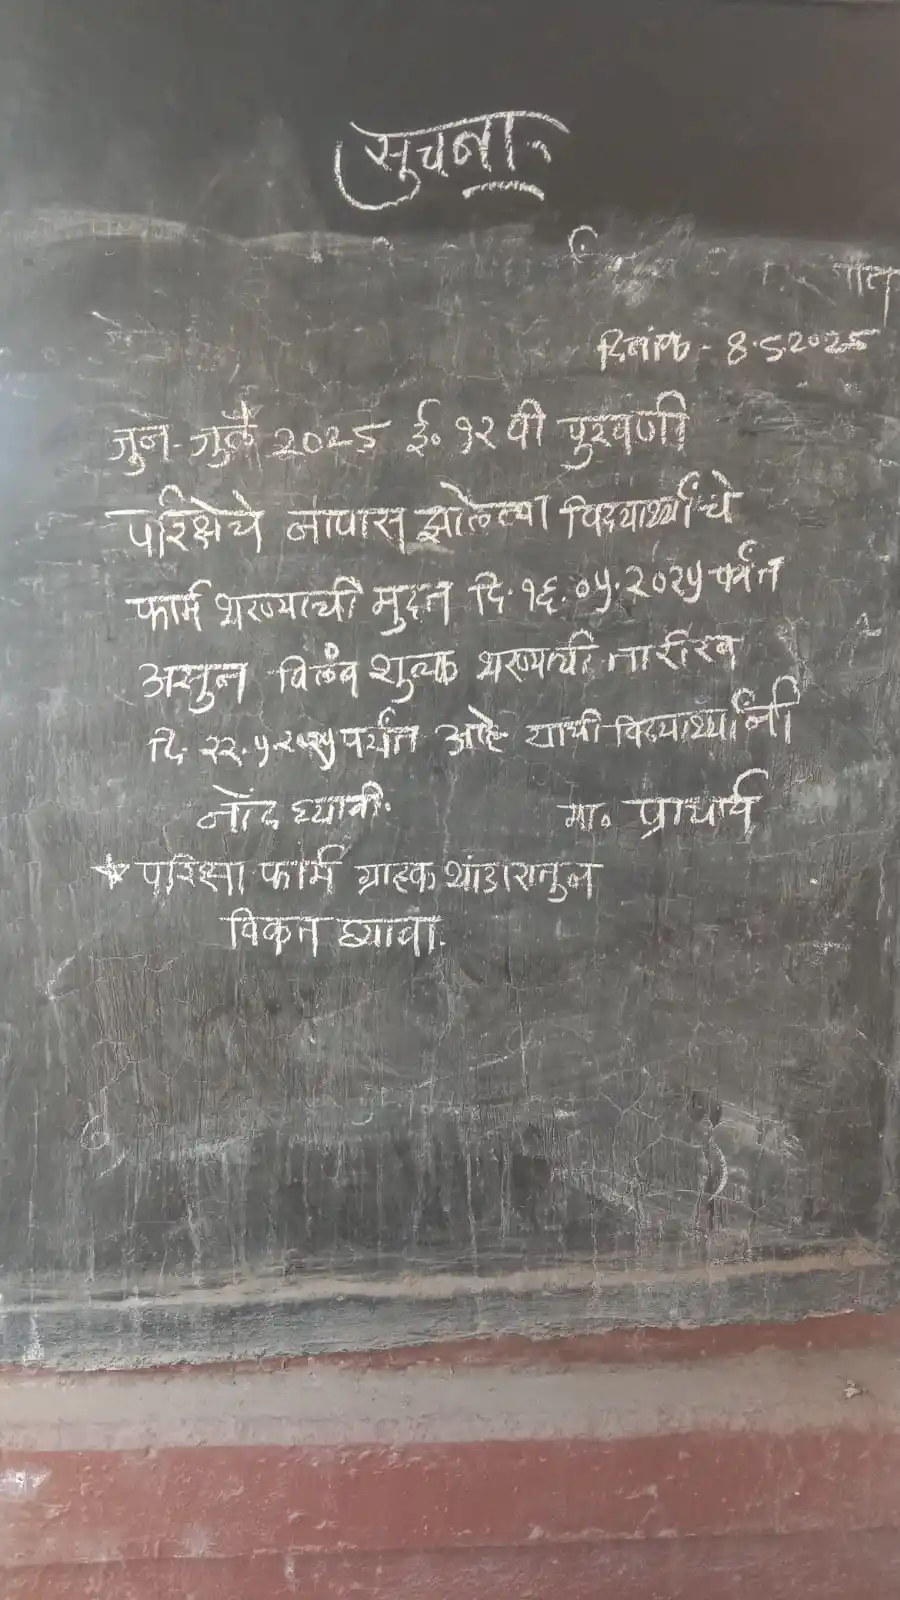 सुचना
दिनांक - 8.5.2025
जुन - जुलै 2025 ई. १२ वी पुरवणी
परिक्षेचे नापास झालेल्या विद्यार्थ्यांचे
फार्म भरण्याची मुदत दि. १६.०५.२०२५ पर्यंत
असुन विलंब शुल्क भरण्याची तारीख
दि. २२.५.२०२५ पर्यंत आहे याची विद्यार्थ्यांनी
नोंद घ्यावी. मा. प्राचार्य
* परिक्षा फार्म ग्राहक भांडारातुन
विकत घ्यावा.